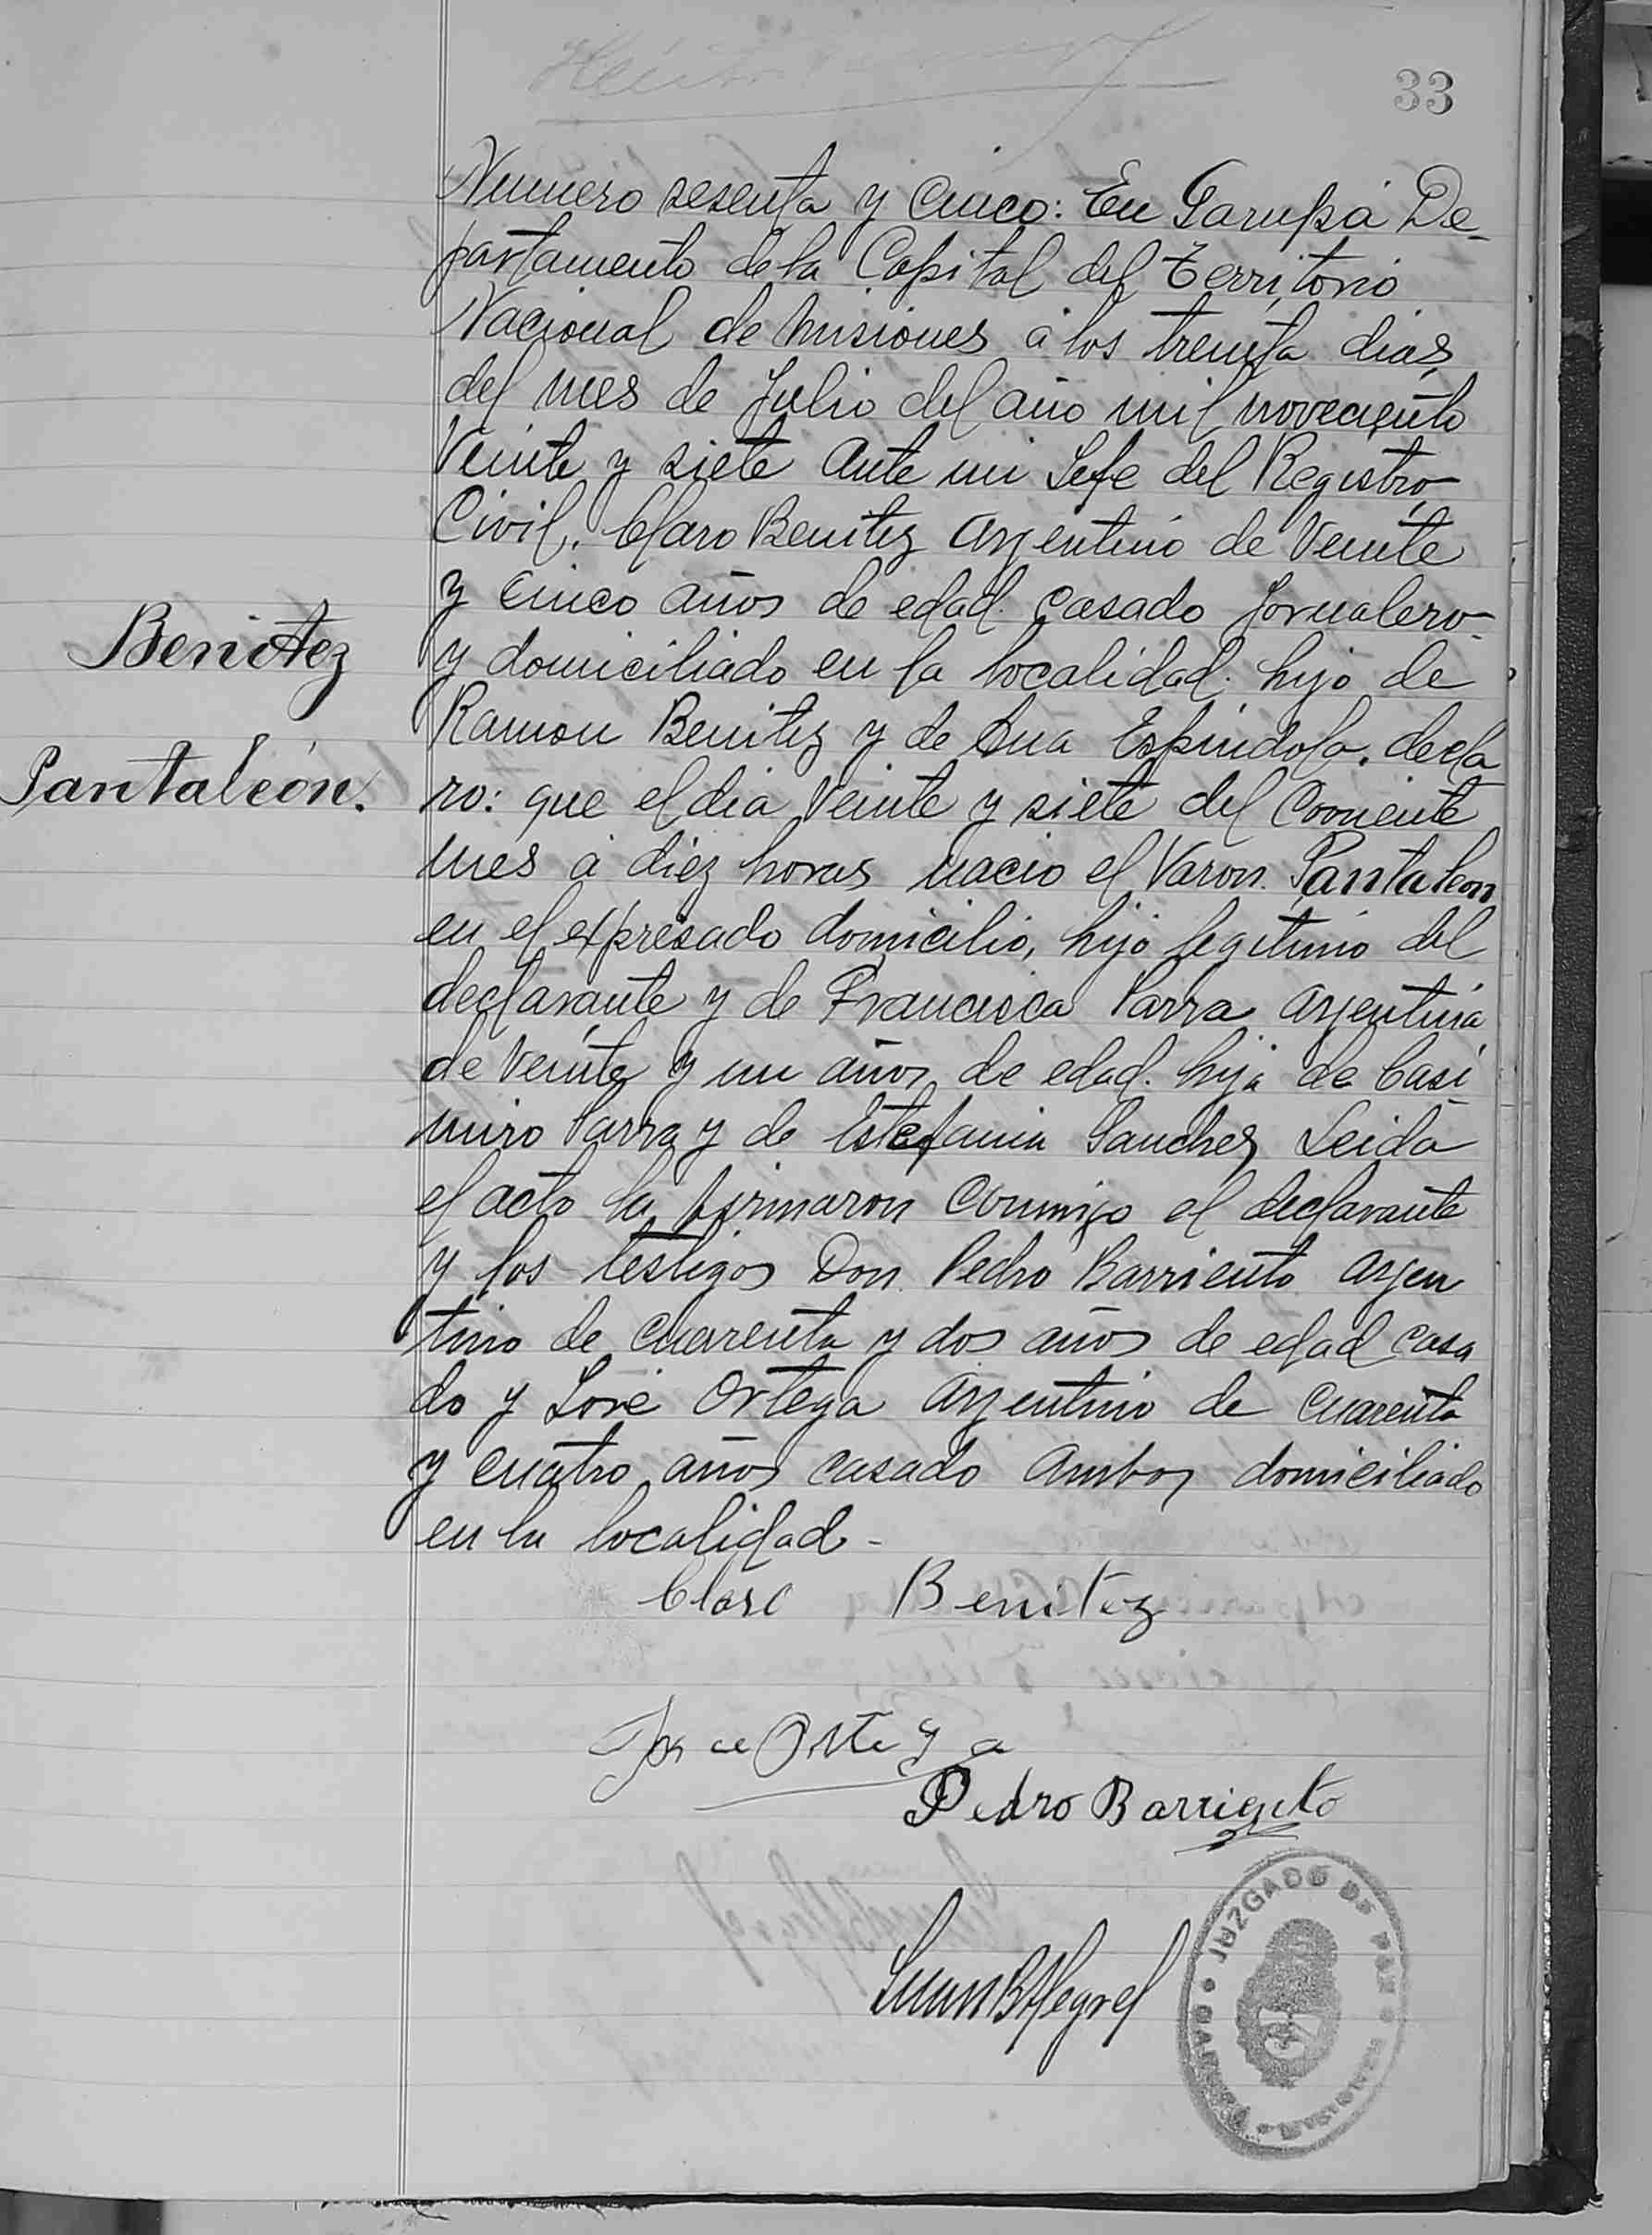 33
Numero sesenta y cinco: En Garupá De-
partamento de la Capital del Territorio
Nacional de Misiones á los treinta dias
del mes de Julio del año mil noveciento
Veinte y siete Ante mi Jefe del Registro
Civil. Claro Benitez Argentino de Veinte
y cinco años de edad. casado Jornalero-
y domiciliado en la localidad. hijo de
Ramon Benitez y de Ana Espindola. decla
ro: que el dia Veinte y siete del Corriente
mes á diez horas nacio el Varon. Pantaleon
en el expresado domicilio, hijo legitimo del
declarante y de Francisca Parra Argentina
de Veinte y un años de edad. hija de Casi
miro Parra y de Estefania Sanchez Leida
el acto la firmaron conmigo el declarante
y los testigos Don. Pedro Barriento Argen
tino de cuarenta y dos años de edad casa
do y José Ortega Argentino de cuarenta
y cuatro años casado Ambos domiciliado
en la localidad-
Benitez
Pantaleón.
Claro Benitez
Jose Ortega
Pedro Barriento
Juan B Alegre
JUZGADO DE PAZ GARUPÁ